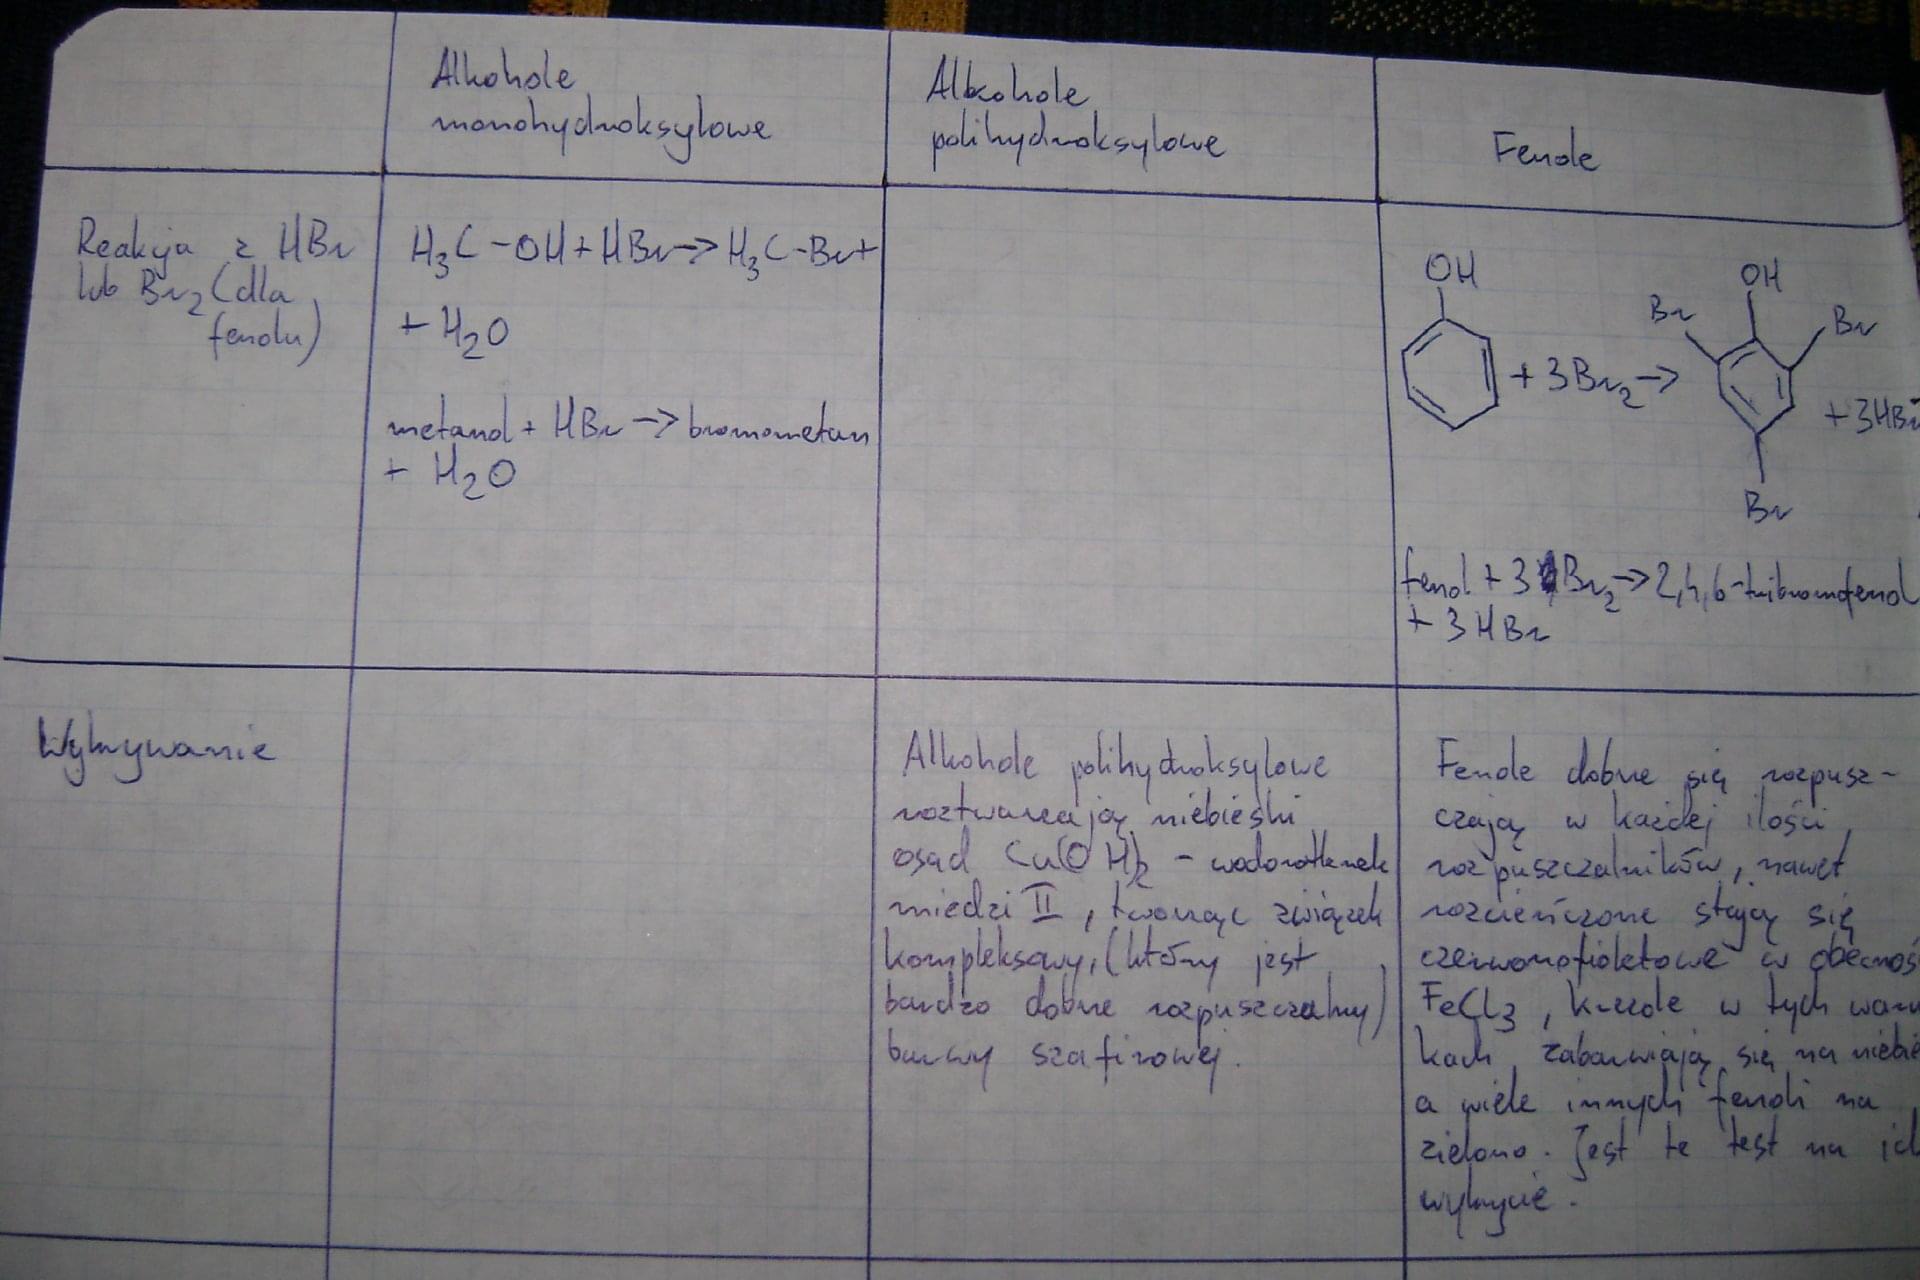 Alkohole
monohydroksylowe
Alkohole
polihydroksylowe
Fenole
Reakcja z HBr
lub Br₂ (dla
fenolu)
H₃C-OH+HBr→H₃C-Br+
+ H₂O
metanol + HBr → bromometan
+ H₂O
OH
+ 3Br₂ →
OH
Br
Br
Br
+ 3HBr
fenol + 3 Br₂ → 2,4,6-tribromofenol
+ 3 HBr
Wykrywanie
Alkohole polihydroksylowe
roztwarzają niebieski
osad Cu(OH)₂ - wodorotlenek
miedzi II, tworząc związek
kompleksowy, (który jest
bardzo dobrze rozpuszczalny)
barwy szafirowej.
Fenole dobrze się rozpusz-
czają w każdej ilości
rozpuszczalników, nawet
rozcieńczone stają się
czerwonofioletowe w obecnoś
FeCl₃, krezole w tych waru
kach zabarwiają się na niebie
a wiele innych fenoli na
zielono. Jest to test na ich
wykrycie.